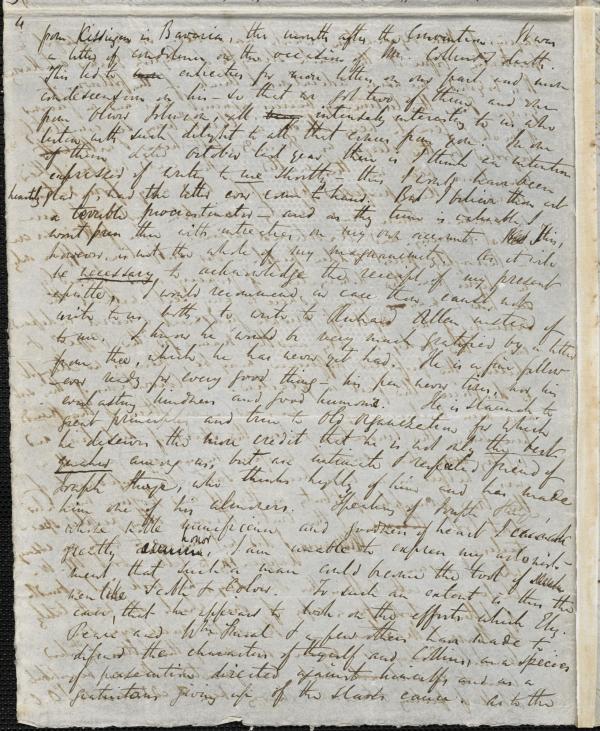 4
from Kissingen in Bavaria, three months after the Convention. It was
a letter of condolence on the occasion of Mr. Collins's death.
This led to entreaties for more letters on our part and more
condescension on his - so that we got two of them and one
from Oliver Johnson, all intensely interesting to us who
listen with such delight to all that comes from you. In one
of them dated October last year there is I think an intention
expressed of writing to me shortly - this I would have been
heartily glad of, had the letter ever come to hand. But I believe thou art
a terrible procrastinator - and as thy time is valuable I
wont press thee with entreaties on my own account. This,
however, is not the whole of my magnanimity. As it will
be necessary to acknowledge the receipt of my present
epistle, I would recommend in case thou canst not
write to us both, to write to Richard Allen instead of
to me. I know he would be very much gratified by a letter
from thee, which he has never yet had. He is a fine fellow
ever ready for every good thing - his pen never tires, nor his
everlasting kindness and good humour. He is staunch to
great principles and true to Old Organization for which
he deserves the more credit that he is not only the best
quaker among us, but an intimate & respected friend of
Joseph Sturge, who thinks highly of him and has made
him one of his almoners. Speaking of Joseph Sturge,
whose noble munificence and goodness of heart I cannot
greatly honor, I am unable to express my astonish-
ment that such a man could become the tool of
men like Scoble & Colver. To such an extent is this the
case, that he appears to look on the efforts which Eliz.
Pease and Wm Smeal & a few others have made to
defend the characters of thyself and Collins, as a species
of persecution directed against himself and as a
gratuitous giving up of the slave's cause. As to the